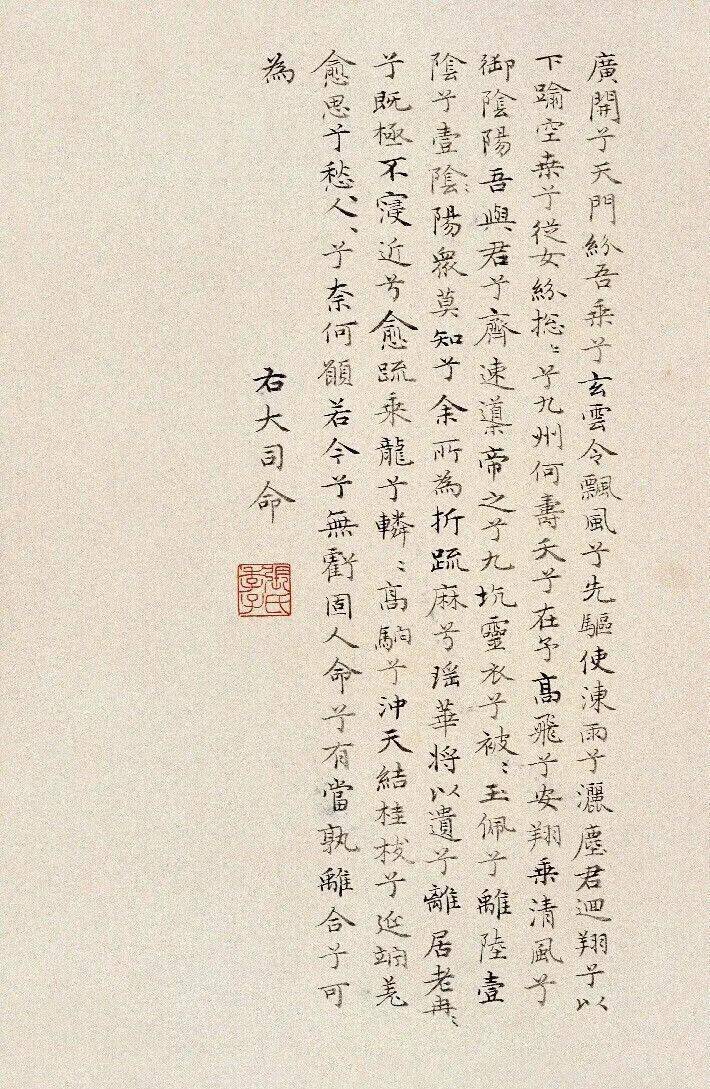 廣開兮天門紛吾乘兮玄雲令飄風兮先驅使涷雨兮灑塵君迴翔兮以
下踰空桒兮從女紛揔〻兮九州何壽夭兮在予高飛兮安翔乘清風兮
御陰陽吾與君兮齊速導帝之兮九坑靈衣兮被〻玉佩兮離陸壹
陰兮壹陰陽衆莫知兮余所為折疏麻兮瑶華将以遺兮離居老冉〻
兮既極不寖近兮愈疏乘龍兮轔〻高駒兮沖天結桂枝兮延竚羌
愈思兮愁人〻兮奈何願若今兮無虧固人命兮有當孰離合兮可
為
右大司命
張氏季子